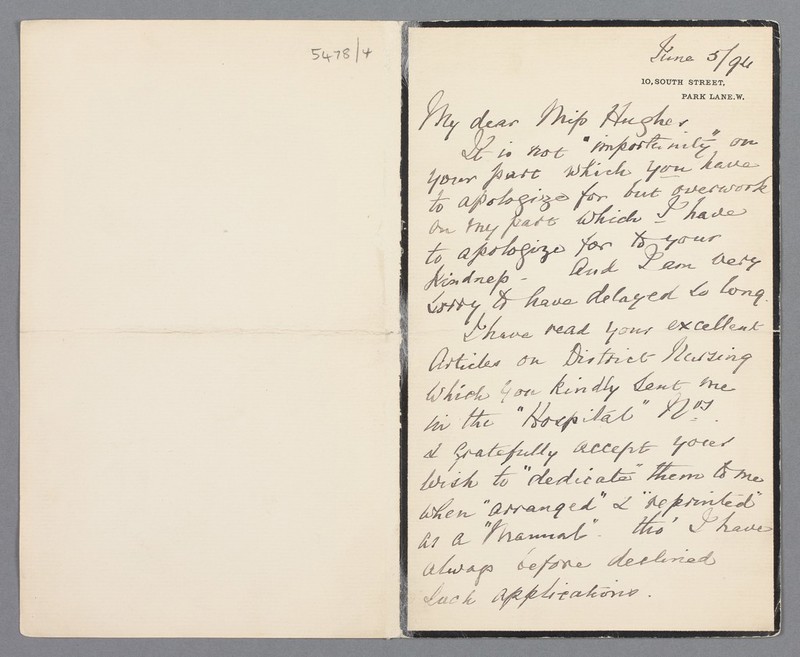 5478/4
June 5/94
10, SOUTH STREET,
PARK LANE. W.
My dear Miss Hughes
It is not "importunity" on
your part which you have
to apologize for but overwork
on my part which I have
to apologize for to your
kindness - And I am very
sorry to have delayed so long.
I have read your excellent
Articles on District Nursing
which you kindly sent me
in the "Hospital" Nos.
& gratefully accept your
wish to "dedicate" them to me
when "arranged" & "reprinted"
as a "Manual". tho' I have
always before declined
such applications.